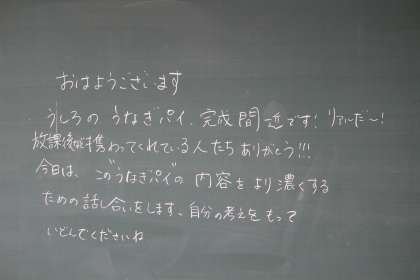 おはようございます
うしろの うなぎパイ、完成間近です! リアルだ〜!
放課後に携わってくれている人たちありがとう!!!
今日は、このうなぎパイの 内容をより濃くする
ための話し合いをします、自分の考えをもって
いどんでくださいね